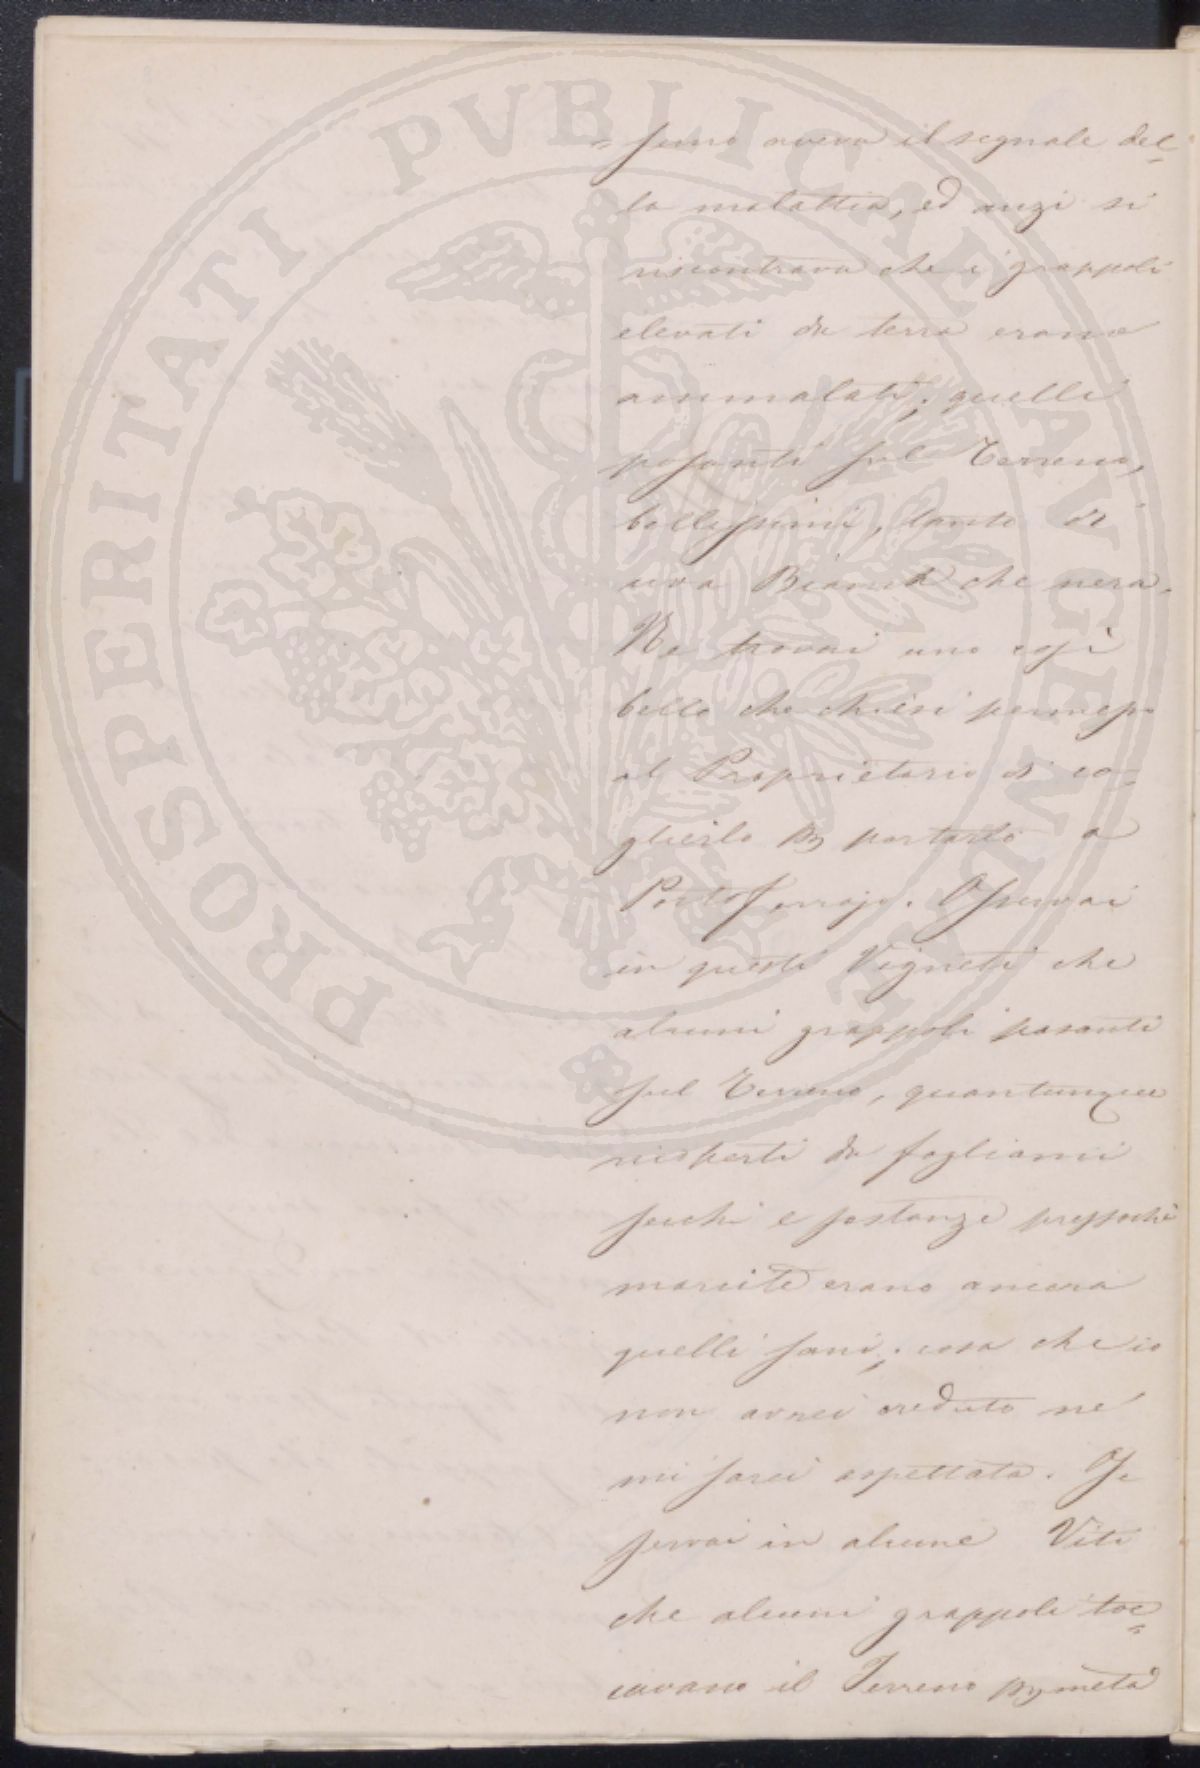 PROSPERITATI PVBLICAE AVGENDAE
= suno aveva il segnale del=
la malattia, ed anzi si
riscontrava che i grappoli
elevati da terra erano
ammalati; quelli
posanti sul Terreno,
bellissimi, tanto di
uva Bianca che nera.
Ne trovai uno così
bello che chiesi permesso
al Proprietario di co=
glierlo per portarlo a
Portoferrajo. Osservai
in questi Vigneti che
alcuni grappoli posanti
sul Terreno, quantunque
ricoperti da fogliami
secchi e sostanze pressochè
marcite erano ancora
quelli sani; cosa che io
non avrei creduto nè
mi sarei aspettata. Os
servai in alcune Viti
che alcuni grappoli toc=
cavano il Terreno per metà